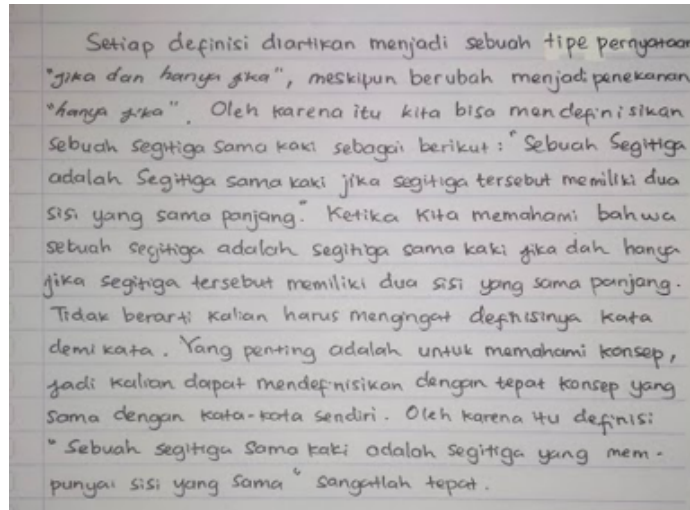 Setiap definisi diartikan menjadi sebuah tipe pernyataan
"jika dan hanya jika", meskipun berubah menjadi penekanan
"hanya jika". Oleh karena itu kita bisa mendefinisikan
sebuah segitiga sama kaki sebagai berikut : "Sebuah Segitiga
adalah Segitiga sama kaki jika segitiga tersebut memiliki dua
sisi yang sama panjang." Ketika kita memahami bahwa
sebuah segitiga adalah segitiga sama kaki jika dan hanya
jika segitiga tersebut memiliki dua sisi yang sama panjang.
Tidak berarti kalian harus mengingat definisinya kata
demi kata. Yang penting adalah untuk memahami konsep,
jadi kalian dapat mendefinisikan dengan tepat konsep yang
sama dengan kata-kata sendiri. Oleh karena itu definisi
"Sebuah segitiga sama kaki adalah segitiga yang mem-
punyai sisi yang sama" sangatlah tepat.